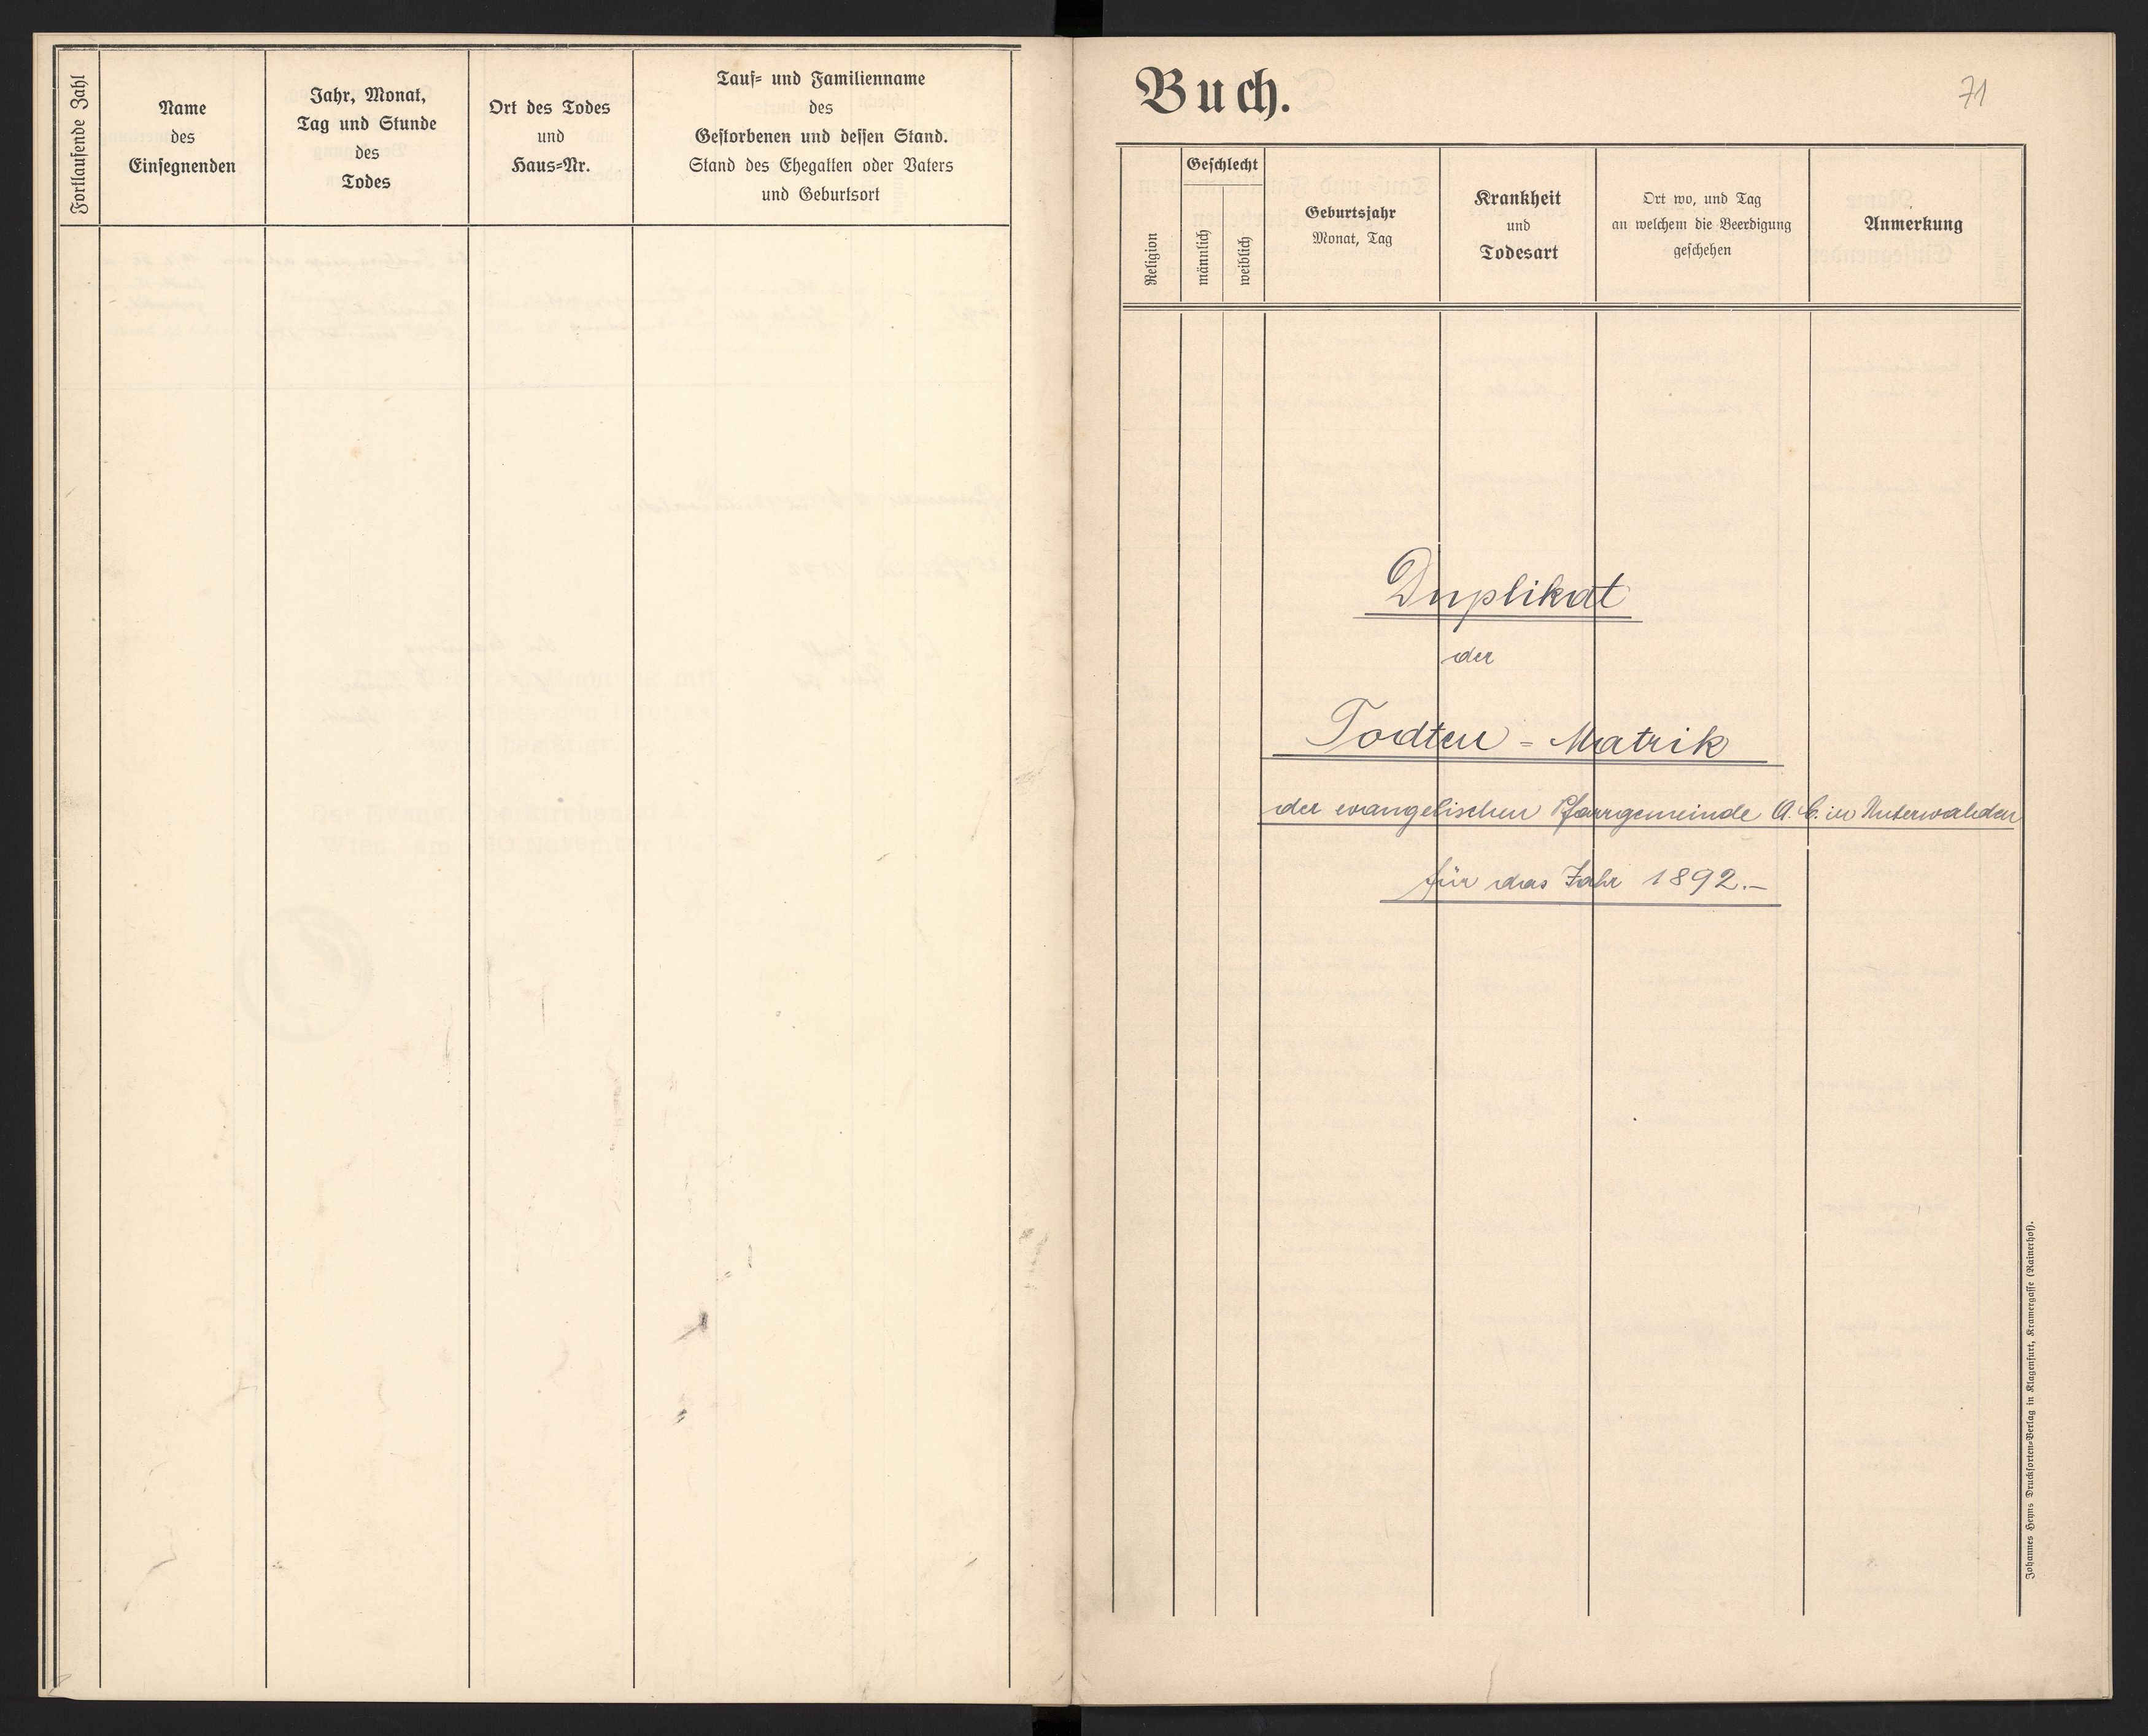 Fortlaufende Zahl
Name
des
Einsegnenden
Jahr, Monat,
Tag und Stunde
des
Todes
Ort des Todes
und
Haus-Nr.
Tauf- und Familienname
des
Gestorbenen und dessen Stand.
Stand des Ehegatten oder Vaters
und Geburtsort
Buch.
71
Religion
Geschlecht
männlich
weiblich
Geburtsjahr
Monat, Tag
Krankheit
und
Todesart
Ort wo, und Tag
an welchem die Beerdigung
geschehen
Anmerkung
Duplikat
der
Todten-Matrik
der evangelischen Pfarrgemeinde A. C. in Unterhalden
für das Jahr 1892.-
Johannes Heyns Drucksorten-Verlag in Klagenfurt, Kramergasse (Rainerhof).